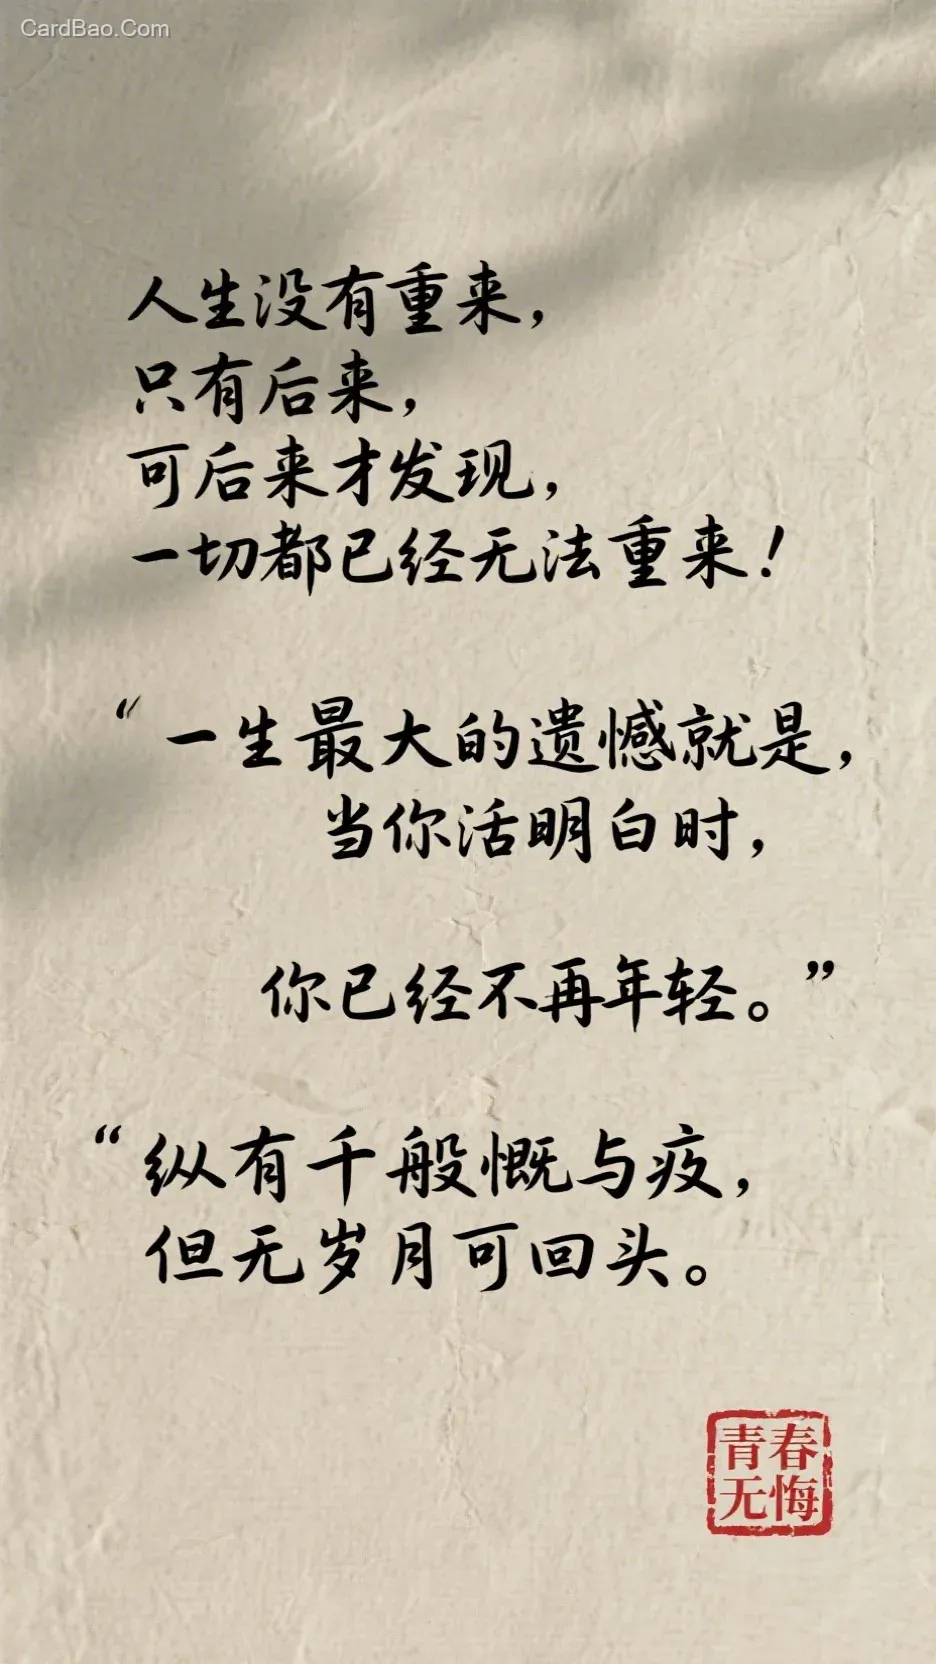 CardBao.Com
人生没有重来，
只有后来，
可后来才发现，
一切都已经无法重来！
“一生最大的遗憾就是，
当你活明白时，
你已经不再年轻。”
“纵有千般慨与疚，
但无岁月可回头。
青春
无悔